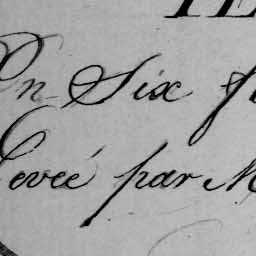 En Six f
Levée par M